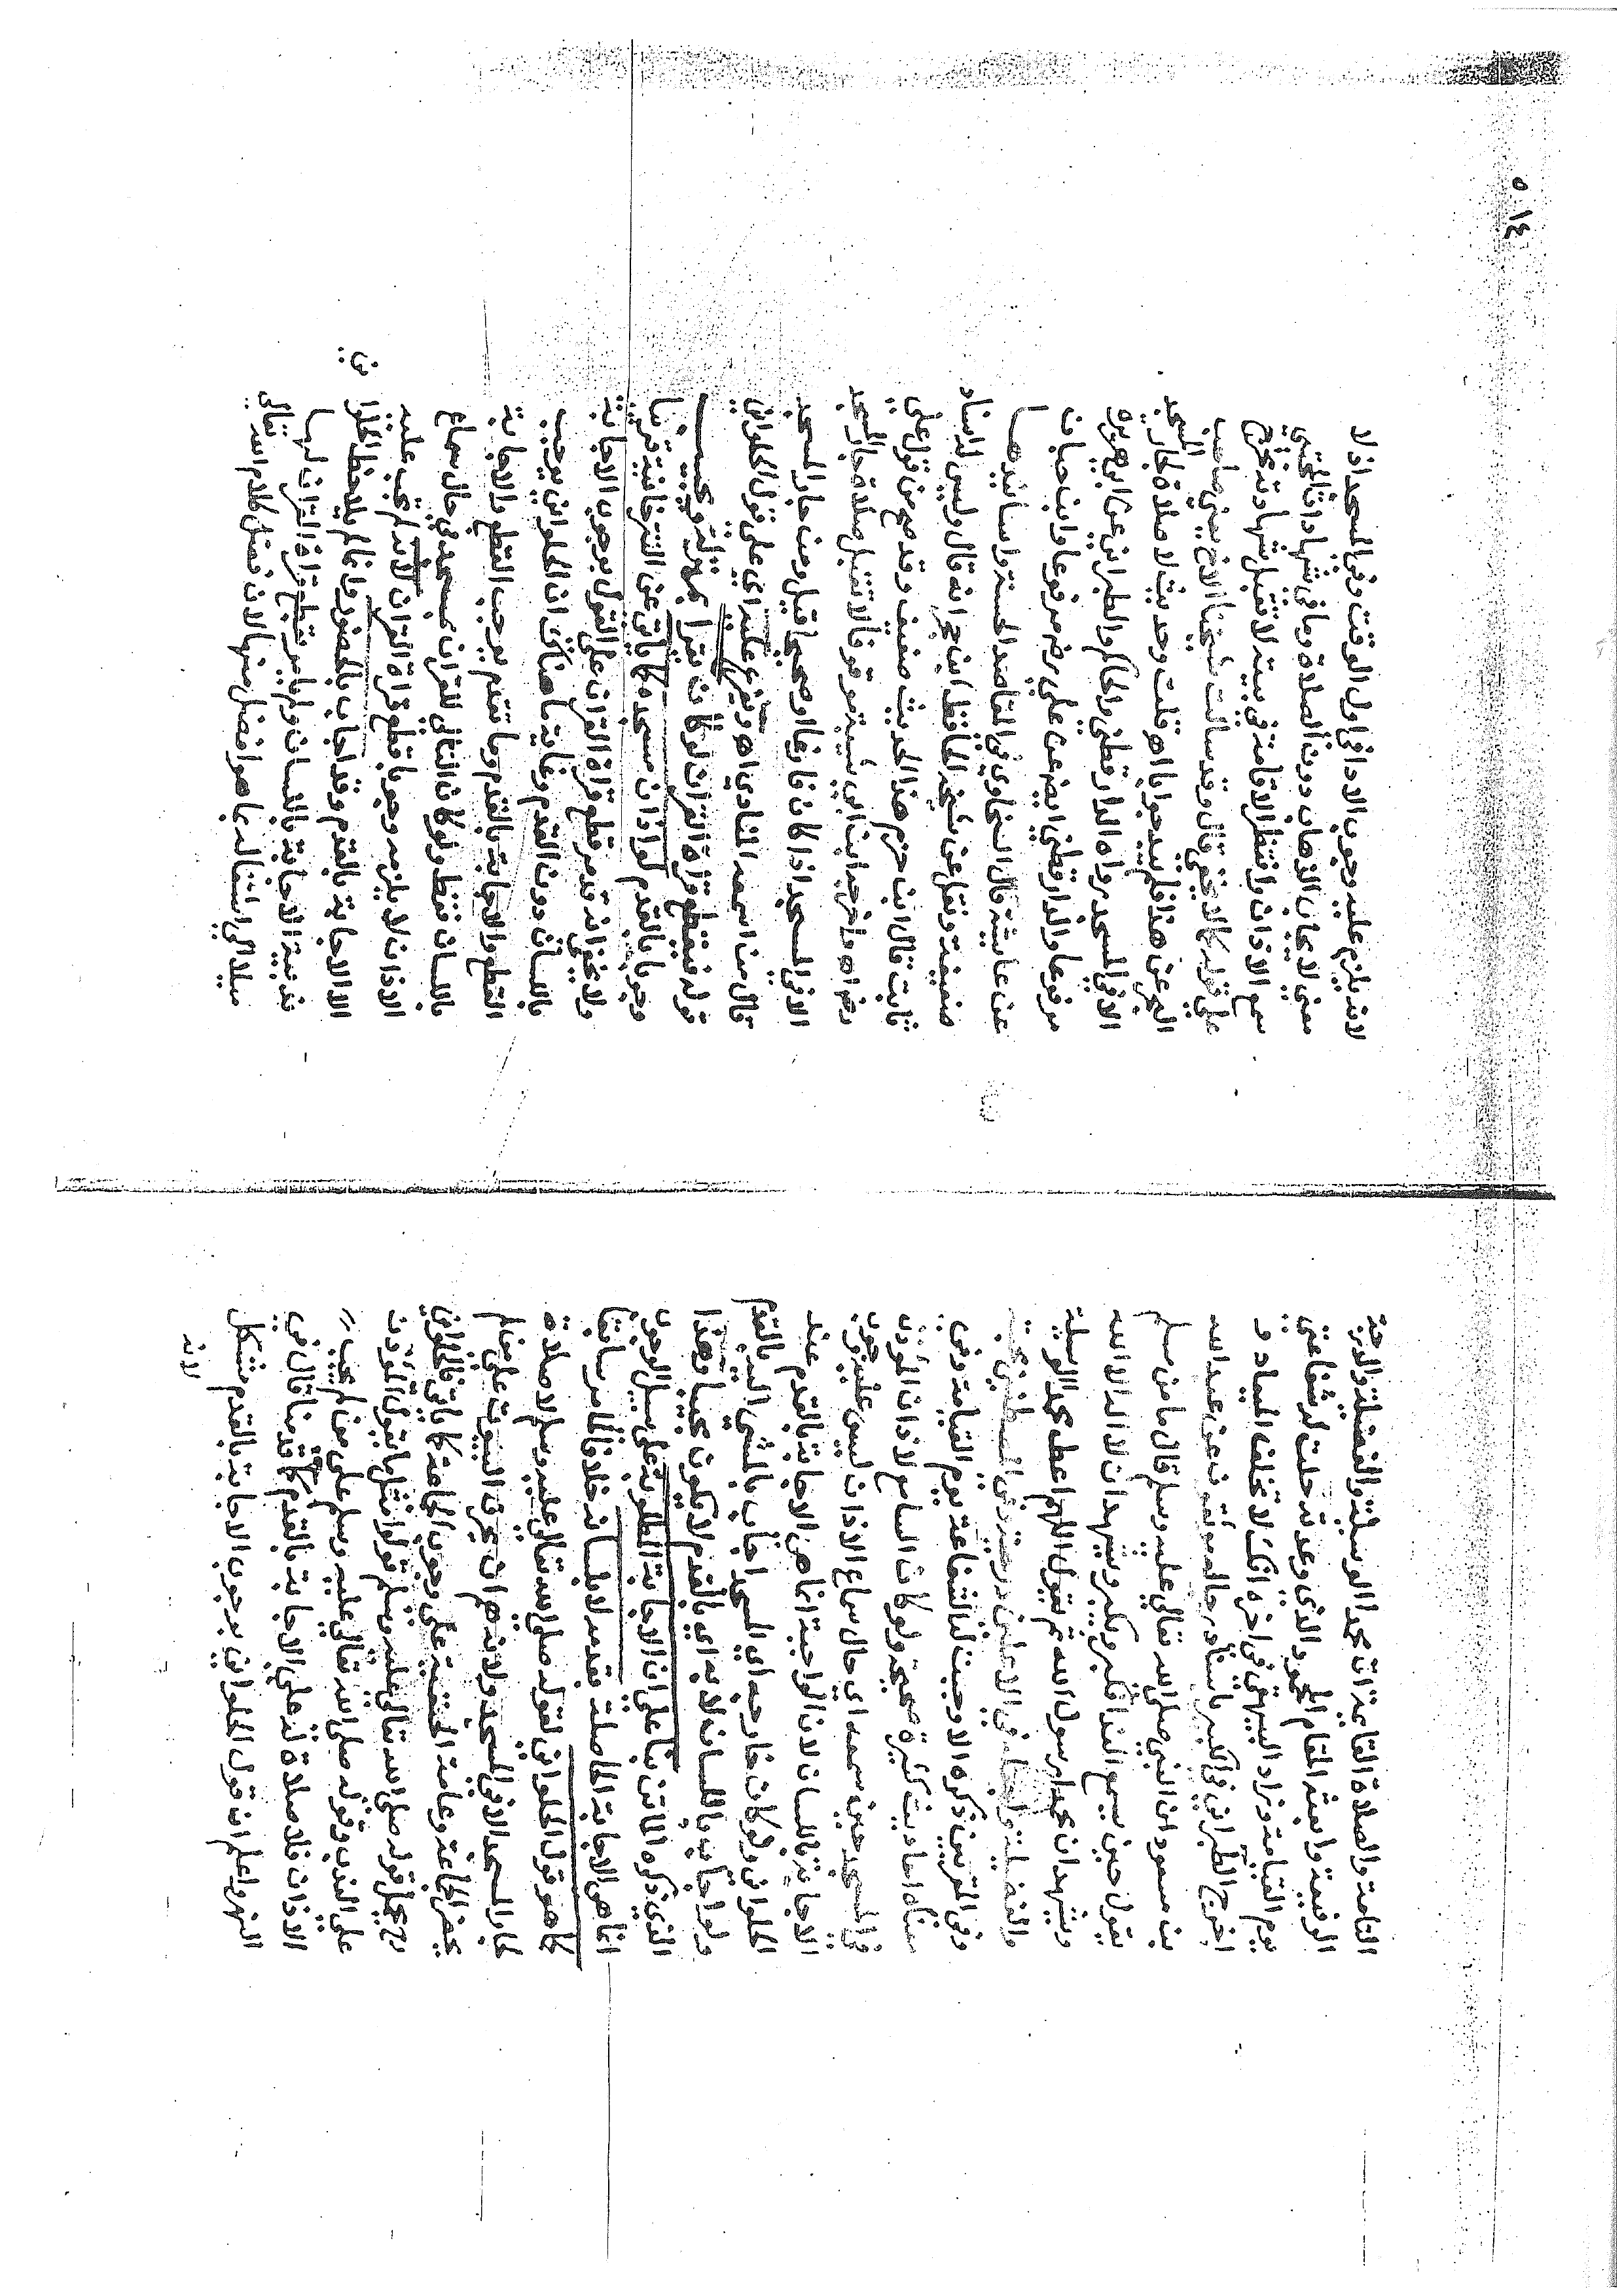 التامة والصلاة القائمة ات محمدا الوسيلة والفضيلة والدرجة
الرفيعة وابعثه المقام المحمود الذي وعدته حلت له شفاعتي
يوم القيامة وزاد البيهقي في اخره انك لا تخلف الميعاد و
اخرج الطبراني في الكبير باسناد رجاله موثقون عن عبد الله
بن مسعود ان النبي صلى الله تعالى عليه وسلم قال ما من مسلم
يقول حين يسمع النداء فيكبر ويكبر ويشهد ان لا اله الا الله
ويشهد ان محمدا رسول الله ثم يقول اللهم اعط محمدا الوسيلة
والفضيلة واجعله في الاعلين درجته وفي المصطفين محبته
وفي المقربين ذكره الا وجبت له الشفاعة يوم القيامة وفي
معناه احاديث كثيرة صحيحة ولو كان السامع لاذان المؤذن
في المسجد حين سمعه اي حال سماع الاذان ليس عليه بوجوب
الاجابة باللسان لان الواجبة انما هي الاجابة بالقدم عند
الحلواني ولو كان خارجه اي المسجد اجاب بالمشي اليه بالقدم
ولو اجاب باللسان لا به اي بالقدم لا يكون مجيبا وهذا
الذي ذكره الماتن بناء على ان الاجابة المطلوبة على سبيل الوجوب
انما هي الاجابة الحاصلة بقدمه لا بلسانه خلافا لما مر سابقا
كما هو قول الحلواني لقوله صلى الله تعالى عليه وسلم لا صلاة
لجار المسجد الا في المسجد ولانه هم ان يحرق البيوت على من لم
يحضر الجماعة وعامة الحنفية على وجوب الجماعة كما ياتي فالحلواني
رح يحمل قوله صلى الله تعالى عليه وسلم قولوا مثل ما يقول المؤذن
على الندب وقوله صلى الله تعالى عليه وسلم على من لم يجب
الاذان فلا صلاة له على الاجابة بالقدم كما قدمنا قال في
النهر واعلم ان قول الحلواني بوجوب الاجابة بالقدم مشكل
لانه
١٤٥
لانه يلزم عليه وجوب الاداء في اول الوقت وفي المسجد اذ لا
معنى لايجاب الذهاب دون الصلاة وما في شهادات المجتبى
سمع الاذان وانتظر الاقامة في بيته لا تقبل شهادته تخرج
على قوله كما لا يخفى قال وقد سالت شيخنا الاخ يعني صاحب
البحر عن هذا فلم يبد جوابا اه قلت وحديث لا صلاة لجار المسجد
الا في المسجد رواه الدارقطني والحاكم والطبراني عن ابي هريرة
مرفوعا والدارقطني ايضا عن علي رضي مرفوعا وابن حبان
عن عايشة قال السخاوي في المقاصد الحسنة واسانيدها
ضعيفة ونقل عن شيخه الحافظ ابن حجر انه قال وليس له اسناد
ثابت قال ابن حزم هذا الحديث ضعيف وقد صح من قول علي
رضي اه واخرجه ابن ابي شيبة موقوفا لا تقبل صلاة جار المسجد
الا في المسجد اذا كان فارغا او صحيحا قيل ومن جار المسجد
قال من اسمعه المنادي اه وتفرع عليه اي على قول الحلواني
قوله فيقطع قراءة القران لو كان يقرا بمنزله ويجيب
وجوبا بالقدم لو اذان مسجده كما ياتي عن التترخانية قريبا
ولا يخفى انه قدم قطع قراءة القران على القول بوجوب الاجابة
باللسان دون القدم وغاية ما هنا ان الحلواني يوجب
القطع والاجابة بالقدم وما تقدم يوجب القطع والاجابة
باللسان فقط ولو كان التالي للقران بمسجد في حال سماع
الاذان لا يلزمه وجوبا قطع قراءة القران لانه لم تجب عليه
الا الاجابة بالقدم وقد اجاب بالحضور وانما لم يلاحظ الحلواني
ندبية الاجابة باللسان ولم يامر بقطع قراءة القران لها
ميلا الى اشتغاله بما هو افضل منها لان فضل كلام الله تعالى